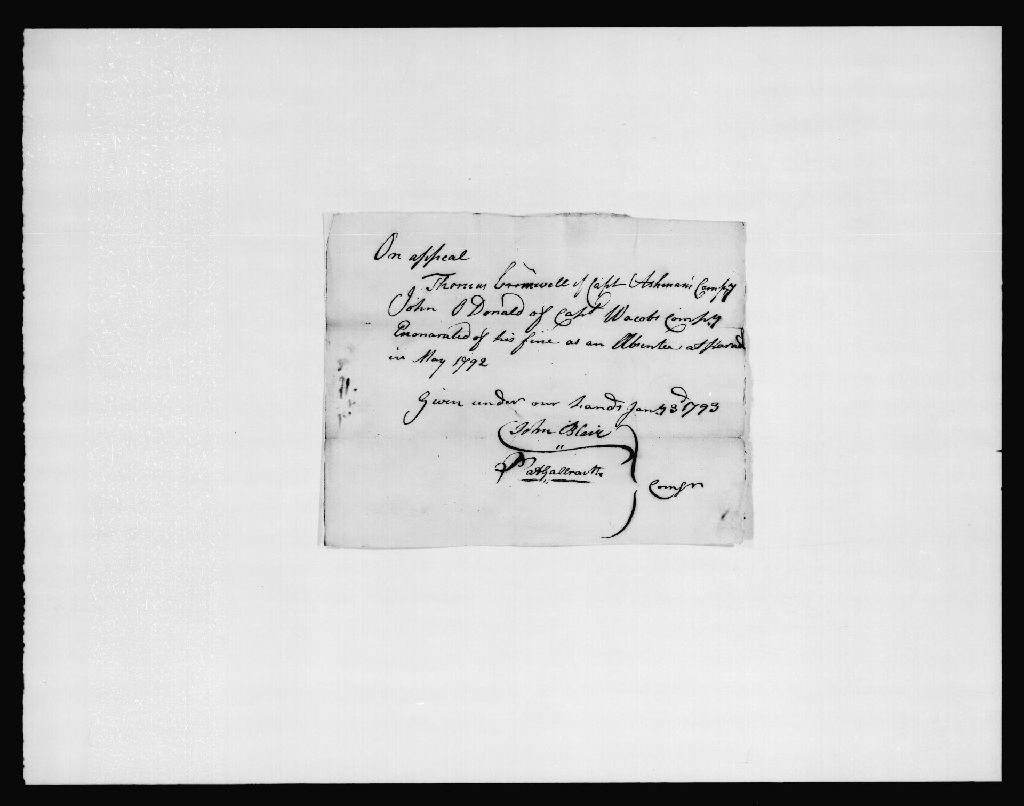 On appeal
Thomas Cromwell of Capt Ashman's Compy
John O Donald of Capt Wacobs Compy
Exonarated of his fine as an Absentee at parade
in May 1792
Given under our hands Jany 3d 1793
John Blair
Pat Galbraith
Comsn